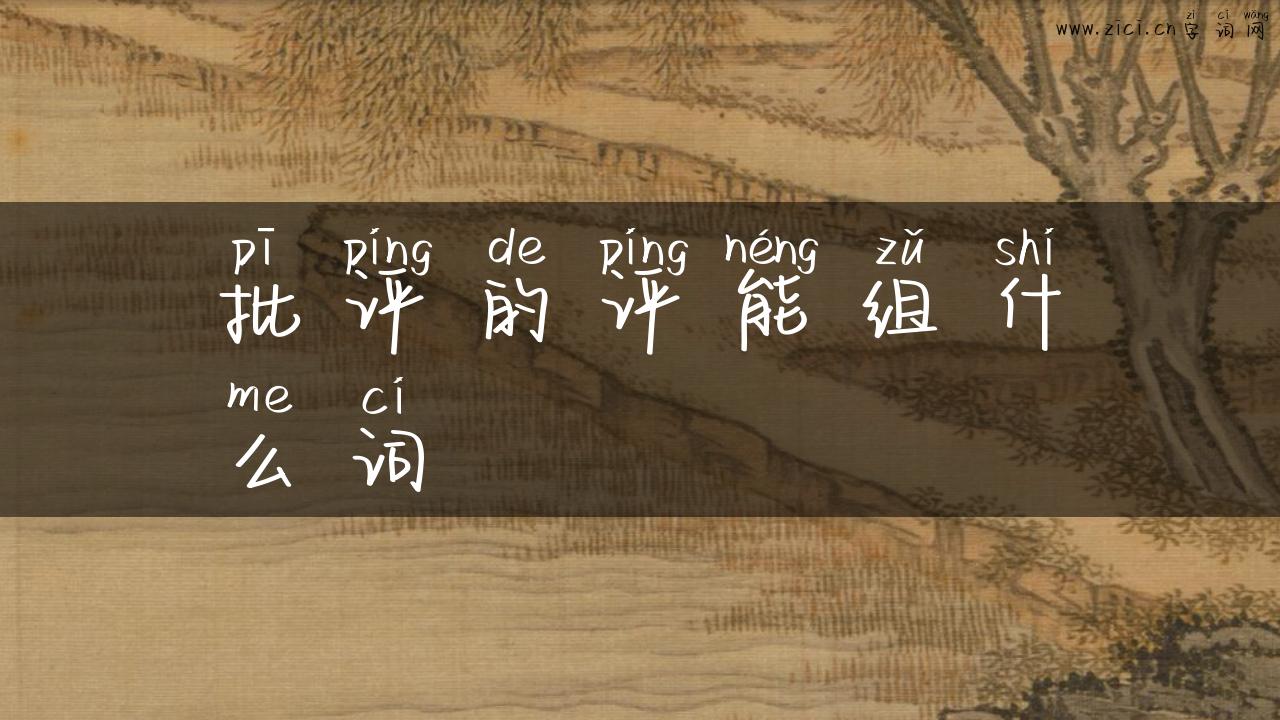 zì cí wǎng
www.zici.cn字词网
pī píng de píng néng zǔ shí
批评的评能组什
me cí
么词